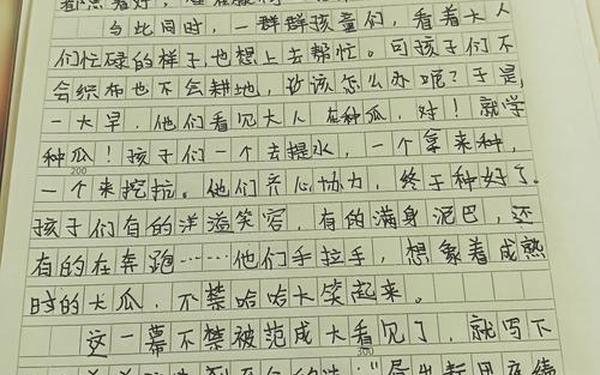 看着好
与此同时，一群群孩童们，看着大人
们忙碌的样子，也想上去帮忙。可孩子们不
会织布也不会耕地，该怎么办呢？于是，
一大早，他们看见大人在种瓜，对！就学
种瓜！孩子们一个去提水，一个拿来种，
200
一个来挖坑。他们齐心协力，终于种好了。
孩子们有的洋溢笑容，有的满身泥巴，还
有的在奔跑……他们手拉手，想象着成熟
时的大瓜，不禁哈哈大笑起来。
这一幕不禁被范成大看见了，就写下
300
"昼出耘田夜绩